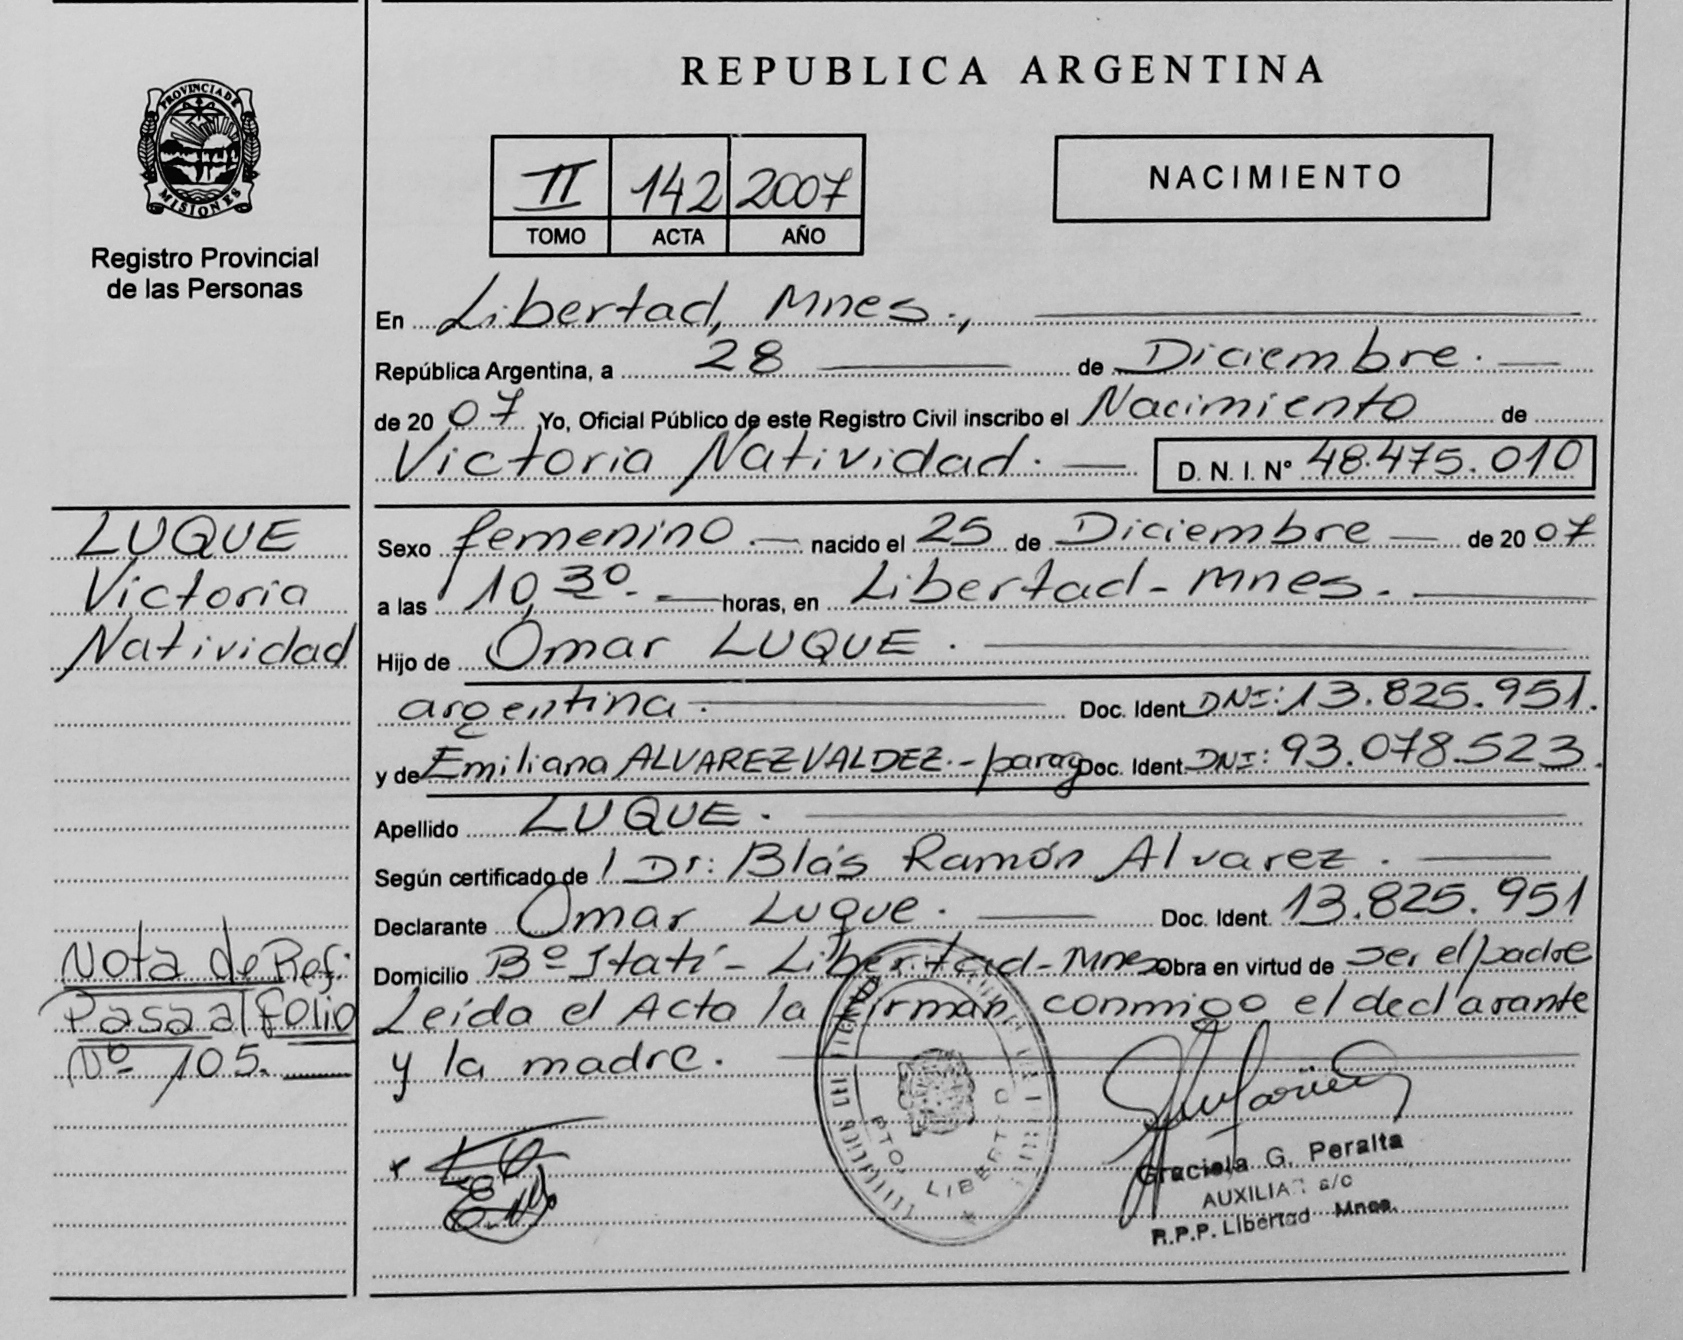 REPUBLICA ARGENTINA
PROVINCIA DE
MISIONES
Registro Provincial
de las Personas
II 142 2007
TOMO ACTA AÑO
NACIMIENTO
En Libertad, Mnes.,
República Argentina, a 28 de Diciembre.
de 20 07 Yo, Oficial Público de este Registro Civil inscribo el Nacimiento de
Victoria Natividad. D. N. I. N° 48.475.010
LUQUE
Victoria
Natividad
Sexo femenino nacido el 25 de Diciembre de 20 07
a las 10,30. horas, en Libertad - Mnes.
Hijo de Omar LUQUE.
argentina. Doc. Ident. DNI: 13.825.951.
y de Emiliana ALVAREZ VALDEZ.- parag Doc. Ident. DNI: 93.078.523.
Apellido LUQUE.
Según certificado de Dr: Blás Ramón Alvarez.
Declarante Omar Luque. Doc. Ident. 13.825.951
Domicilio Bº Itatí - Libertad - Mnes Obra en virtud de ser el padre
Leída el Acta la firman conmigo el declarante
y la madre.
Nota de Ref:
Pasa al Folio
Nº 105.
PTO. LIBERTAD
Graciela G. Peralta
AUXILIAR a/c
R.P.P. Libertad Mnes.